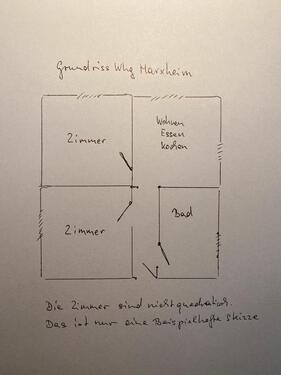 Grundriss Whg Marxheim
Zimmer
Wohnen
Essen
Kochen
Zimmer
Bad
Die Zimmer sind nicht quadratisch.
Das ist nur eine Beispielhafte Skizze